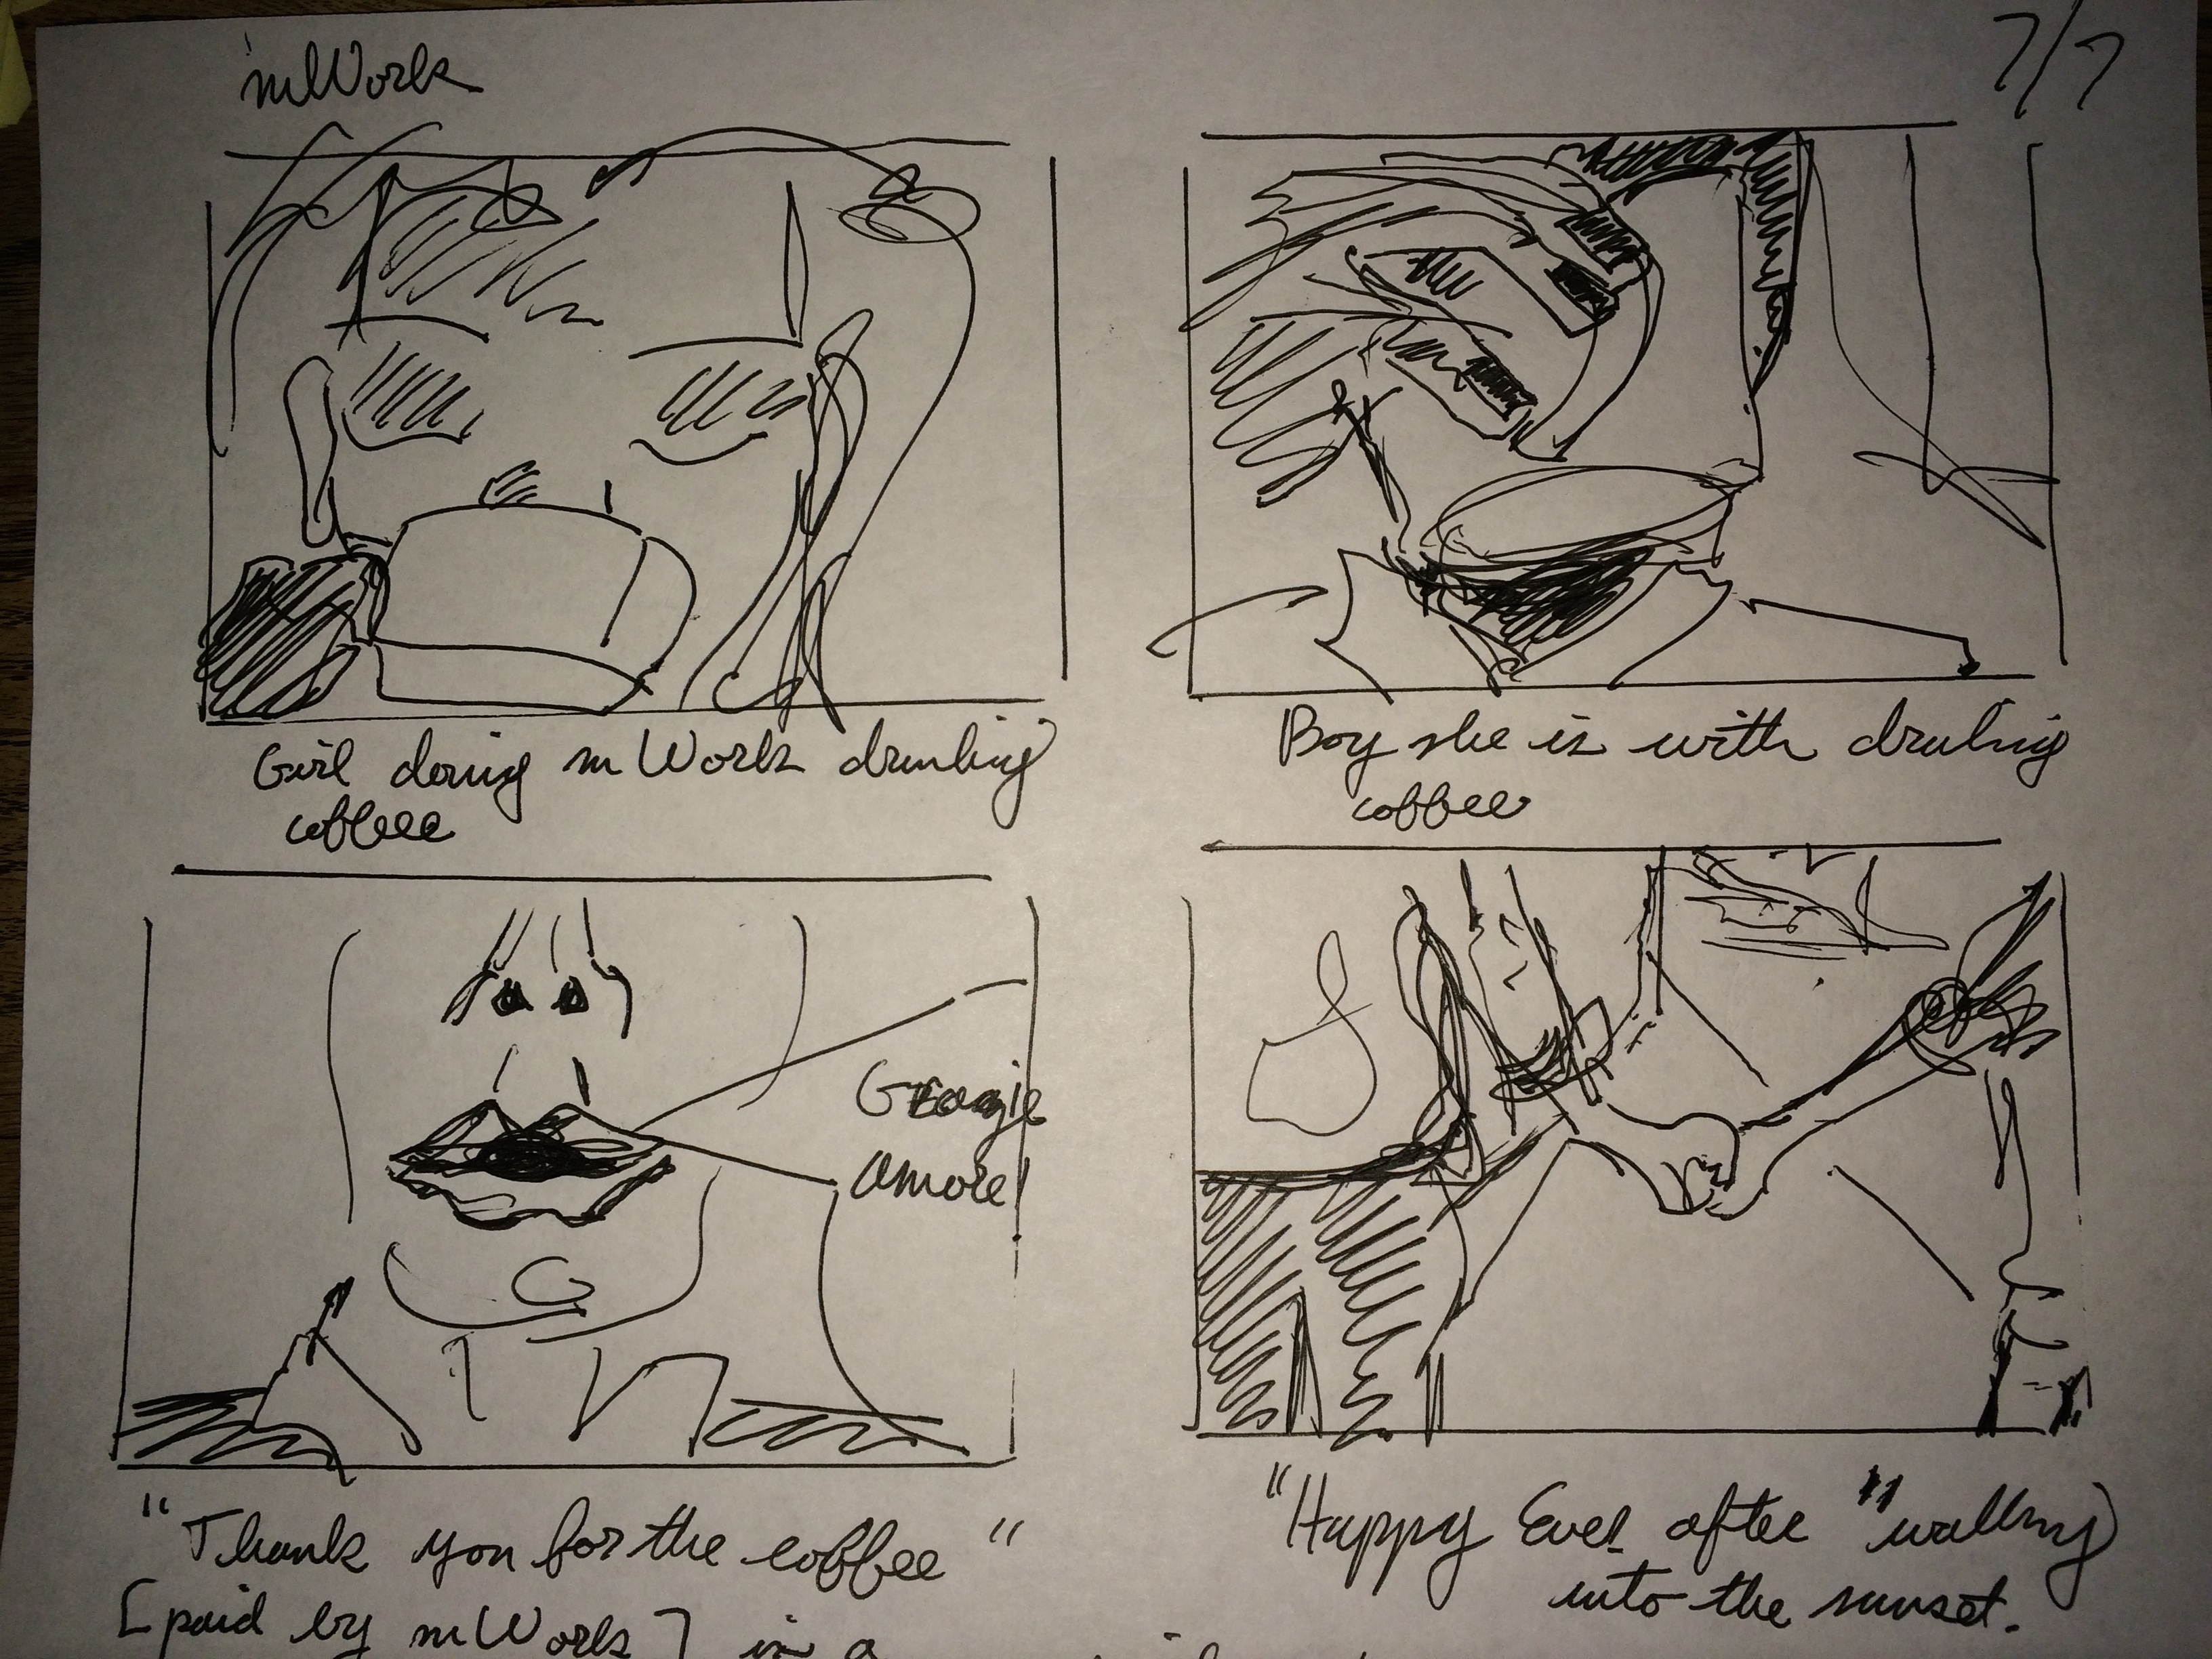 mWork
7/7
Girl doing mWork drinking
coffee
Boy she is with drinking
coffee
Amore!
"Thank you for the coffee"
[paid by mWork] in a
"Happy Ever after" walking
into the sunset.